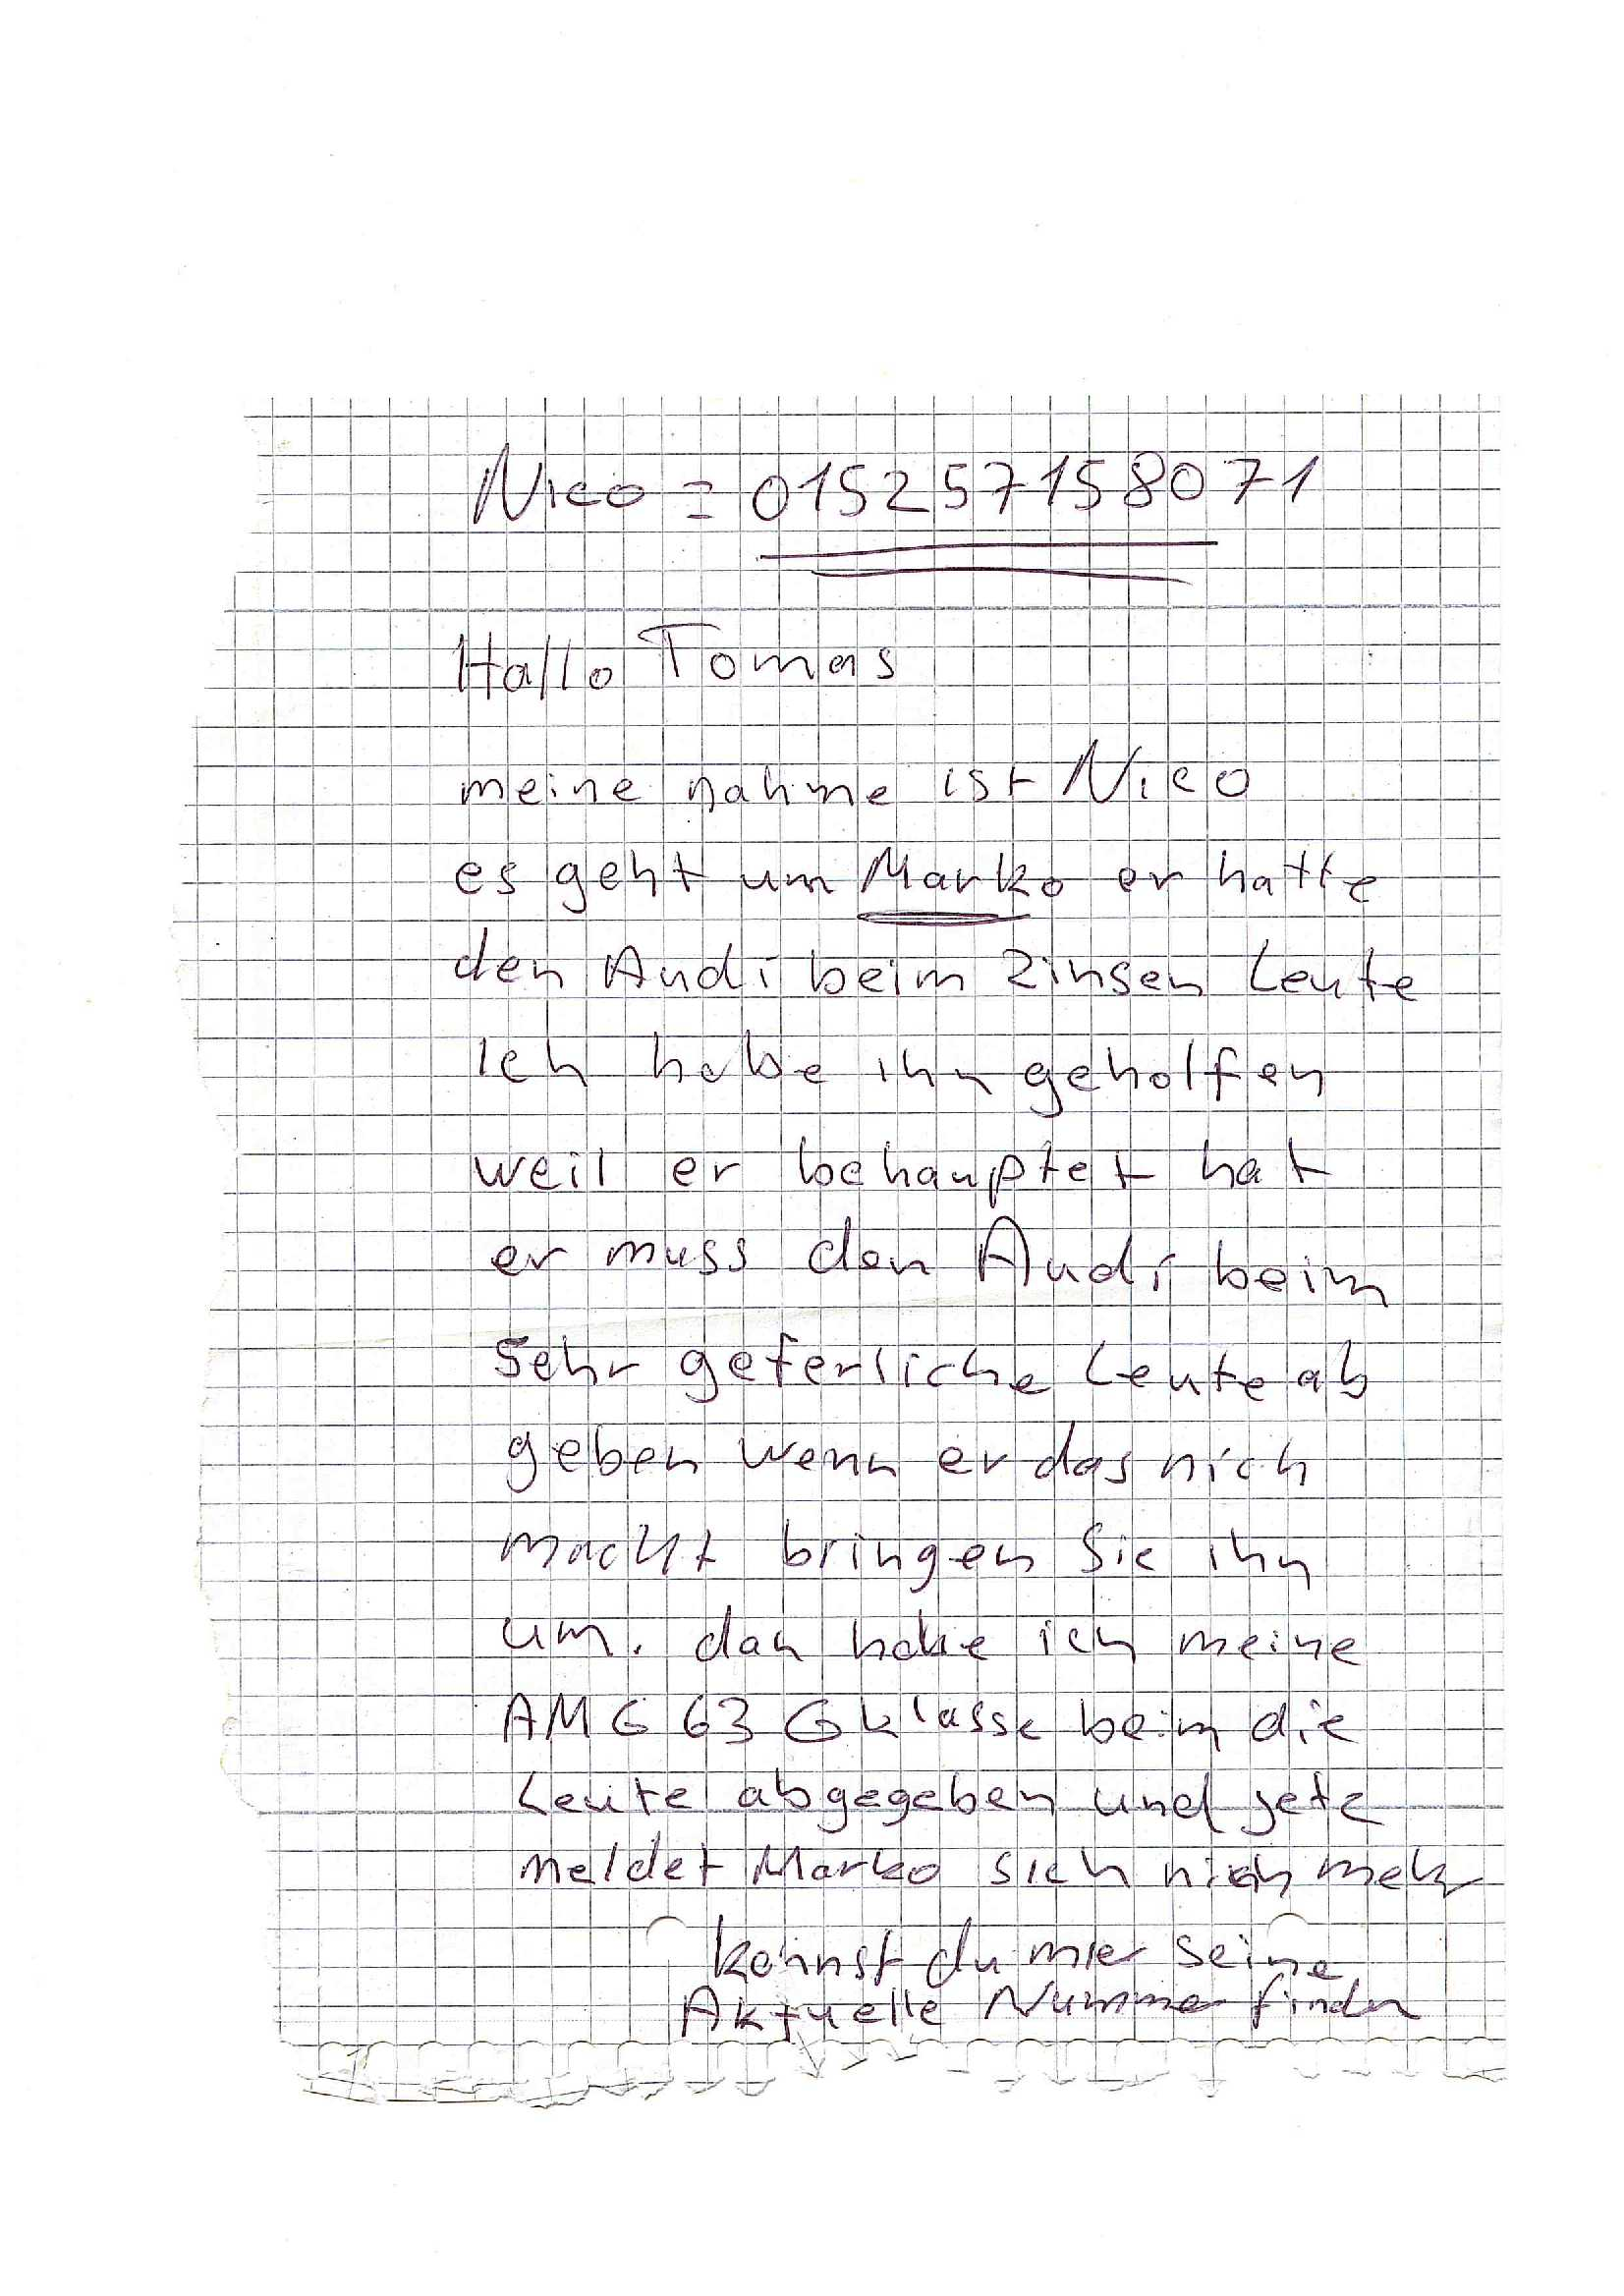 Nico = 015257158071
Hallo Tomas
meine nahme ist Nico
es geht um Marko er hatte
den Audi beim Zinsen Leute
Ich habe ihn geholfen
weil er behauptet hat
er muss den Audi beim
Sehr geferliche Leute ab
geben wenn er das nich
macht bringen Sie ihn
um. dan habe ich meine
AMG 63 G klasse beim die
Leute abgegeben und jetz
meldet Marko sich nich mehr
kennst du mier seine
Aktuelle Nummer finden